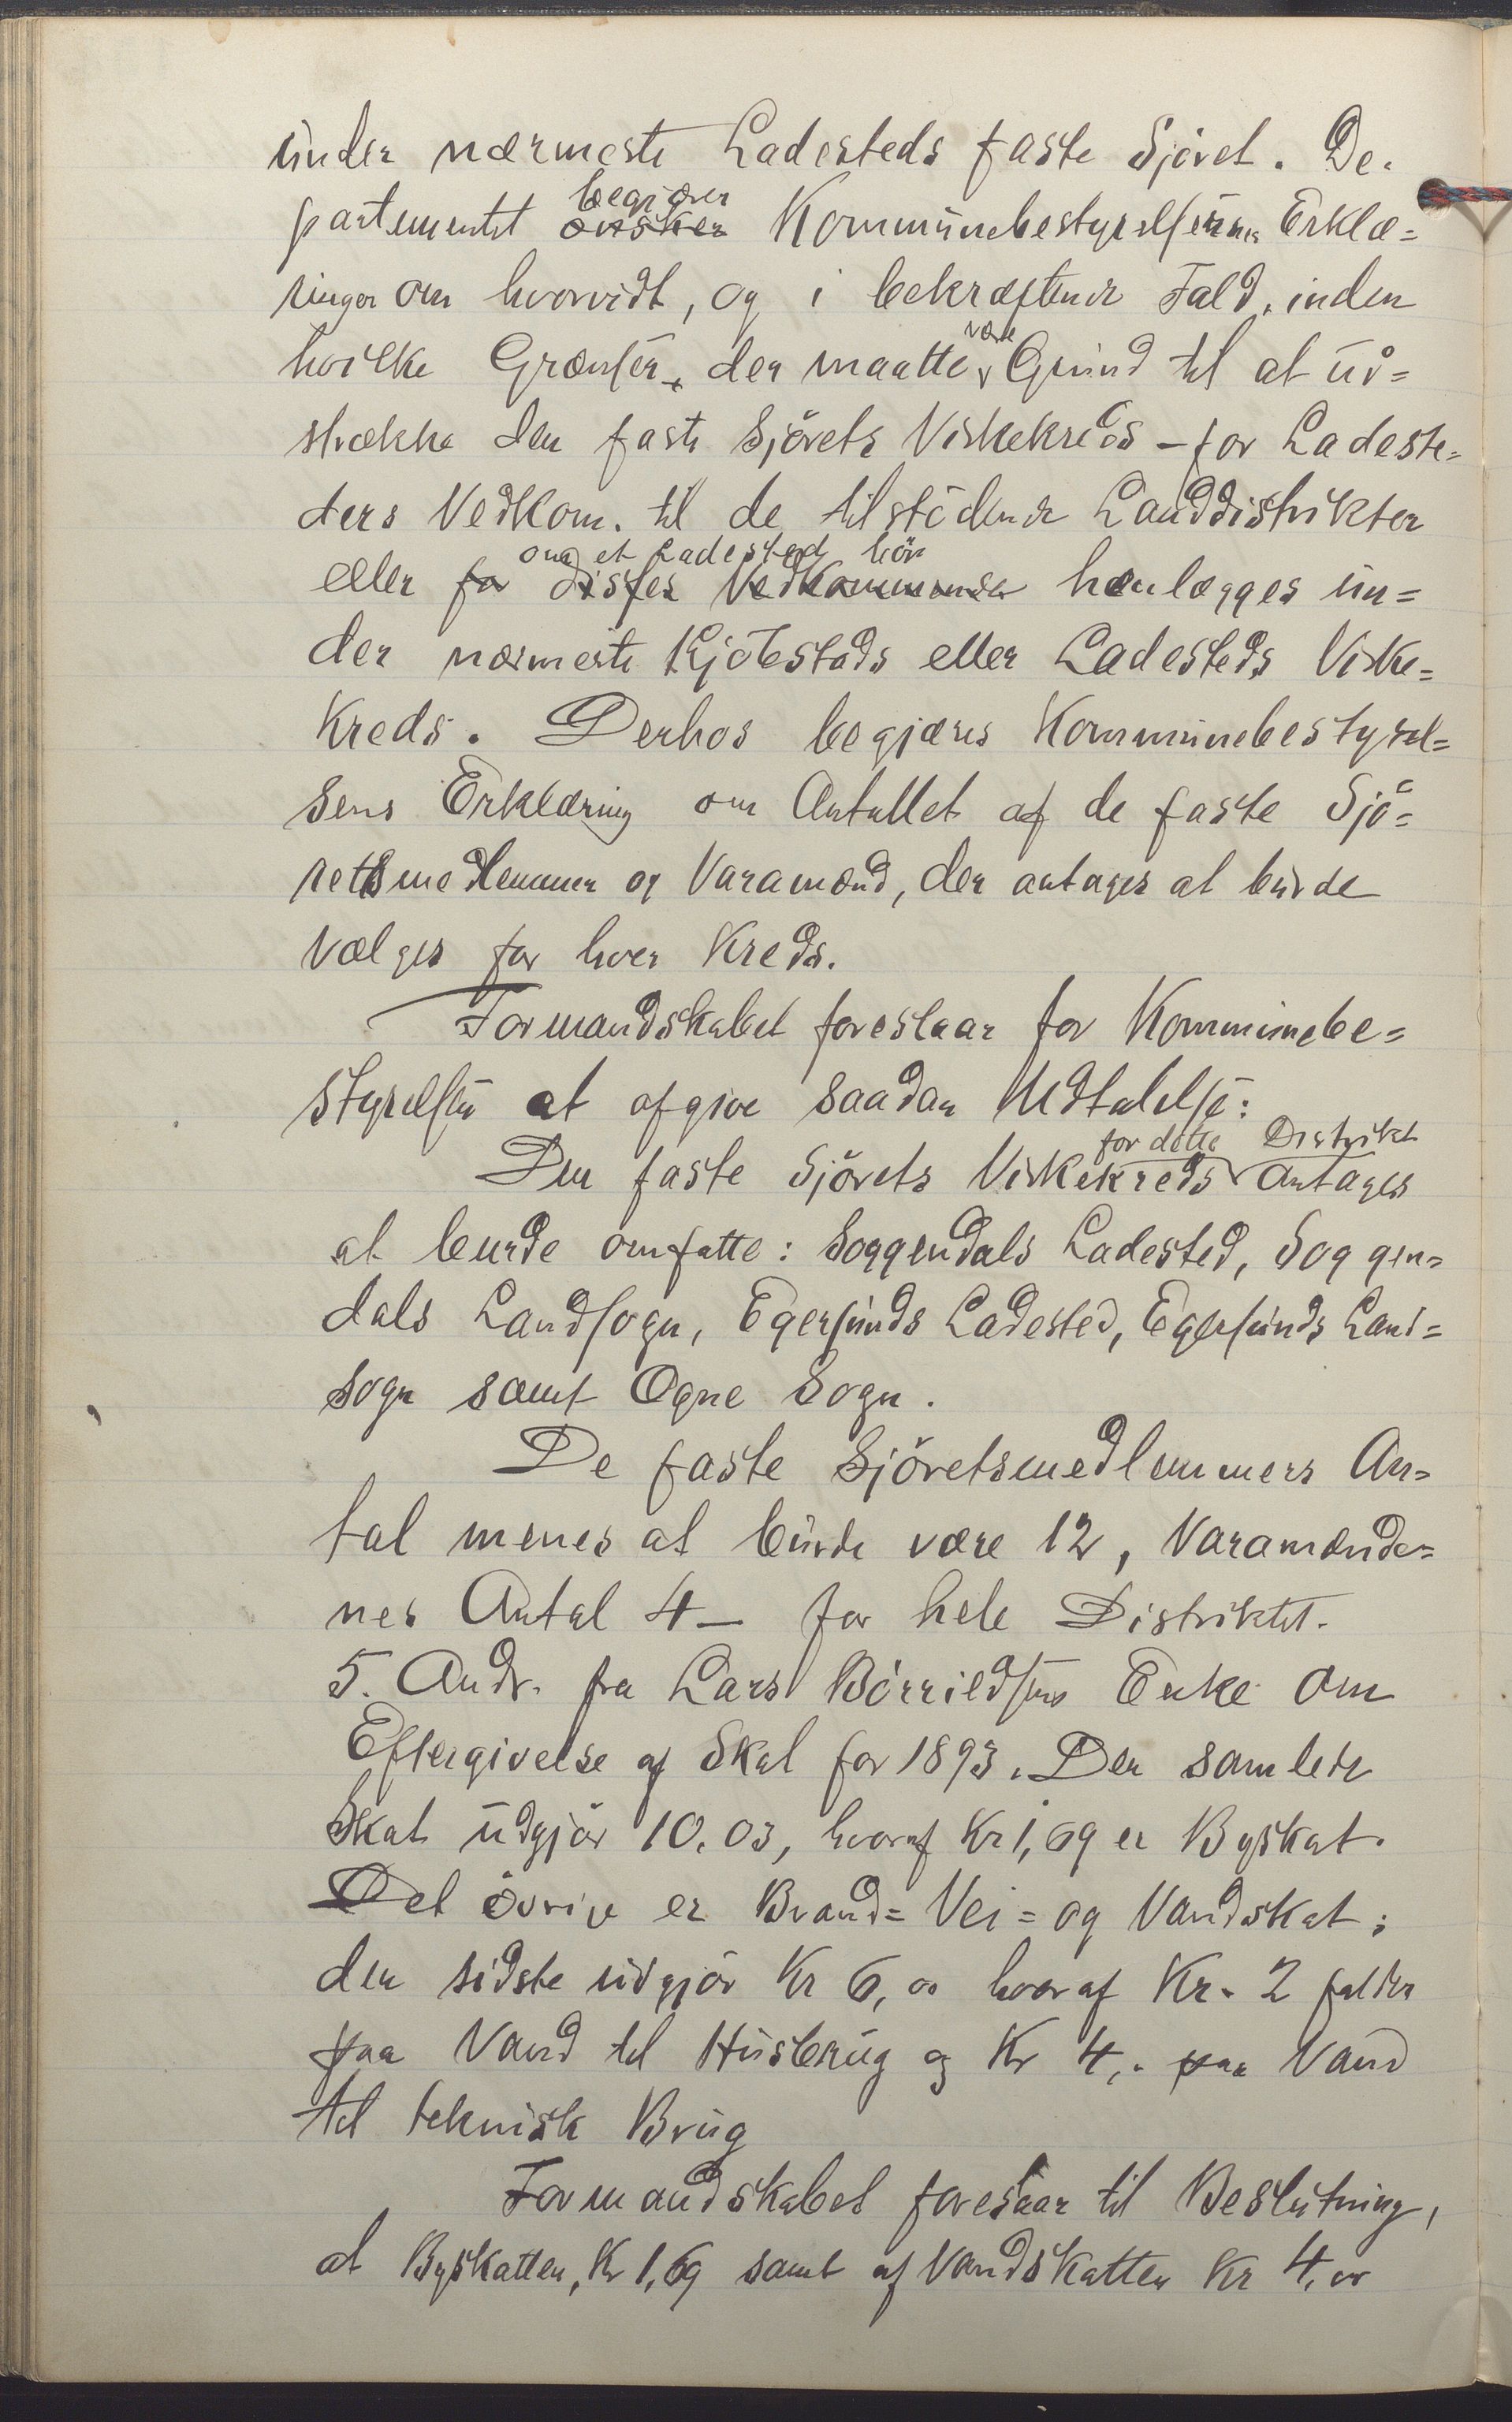 under nærmeste Ladesteds faste Sjöret. De-
begjærer
partementet ønsker Kommunebestyrelsernes Erklæ=
ringer om hvorvidt, og i bekræftende Fald, inden
være
hvilke Grænser, der maatte Grund til at ud=
strække den faste Sjörets Virkekreds - for Ladeste-
ders Vedkom. til de tilstödende Landdistrikter
om et Ladested bör
eller for disses Vedkommende henlægges un=
der nærmeste Kjöbstads eller Ladesteds Virke=
kreds. Derhos begjæres Kommunebestyrel=
sens Erklæring om Antallet af de faste Sjö=
rettsmedlemmer og Varamænd, der antages at burde
vælges for hver Kreds.
Formandskabet foreslaar for Kommunebe=
styrelsen at afgive saadan Udtalelse:
for dette Distrikt
Den faste Sjörets Virkekreds antages
at burde omfatte: Soggendals Ladested, Soggen=
dals Landsogn, Egersunds Ladested, Egersunds Land=
sogn samt Ogne Sogn.
De faste Sjöretsmedlemmers An=
tal menes at burde være 12, Varamænde=
nes Antal 4 - for hele Distriktet.
5. Andr. fra Lars Börrildsens Enke om
Eftergivelse af Skat for 1893. Den samlede
Skat udgjör 10.03, hvoraf Kr 1,69 er Byskat.
Det övrige er Brand= Vei= og Vandskat;
den sidste udgjör Kr 6,00 hvoraf Kr. 2 falder
paa Vand til Husbrug og Kr 4,- paa Vand
til teknisk Brug
Formandskabet foreslaar til Beslutning,
at Byskatten, Kr 1,69 samt af Vandskatten Kr 4,00